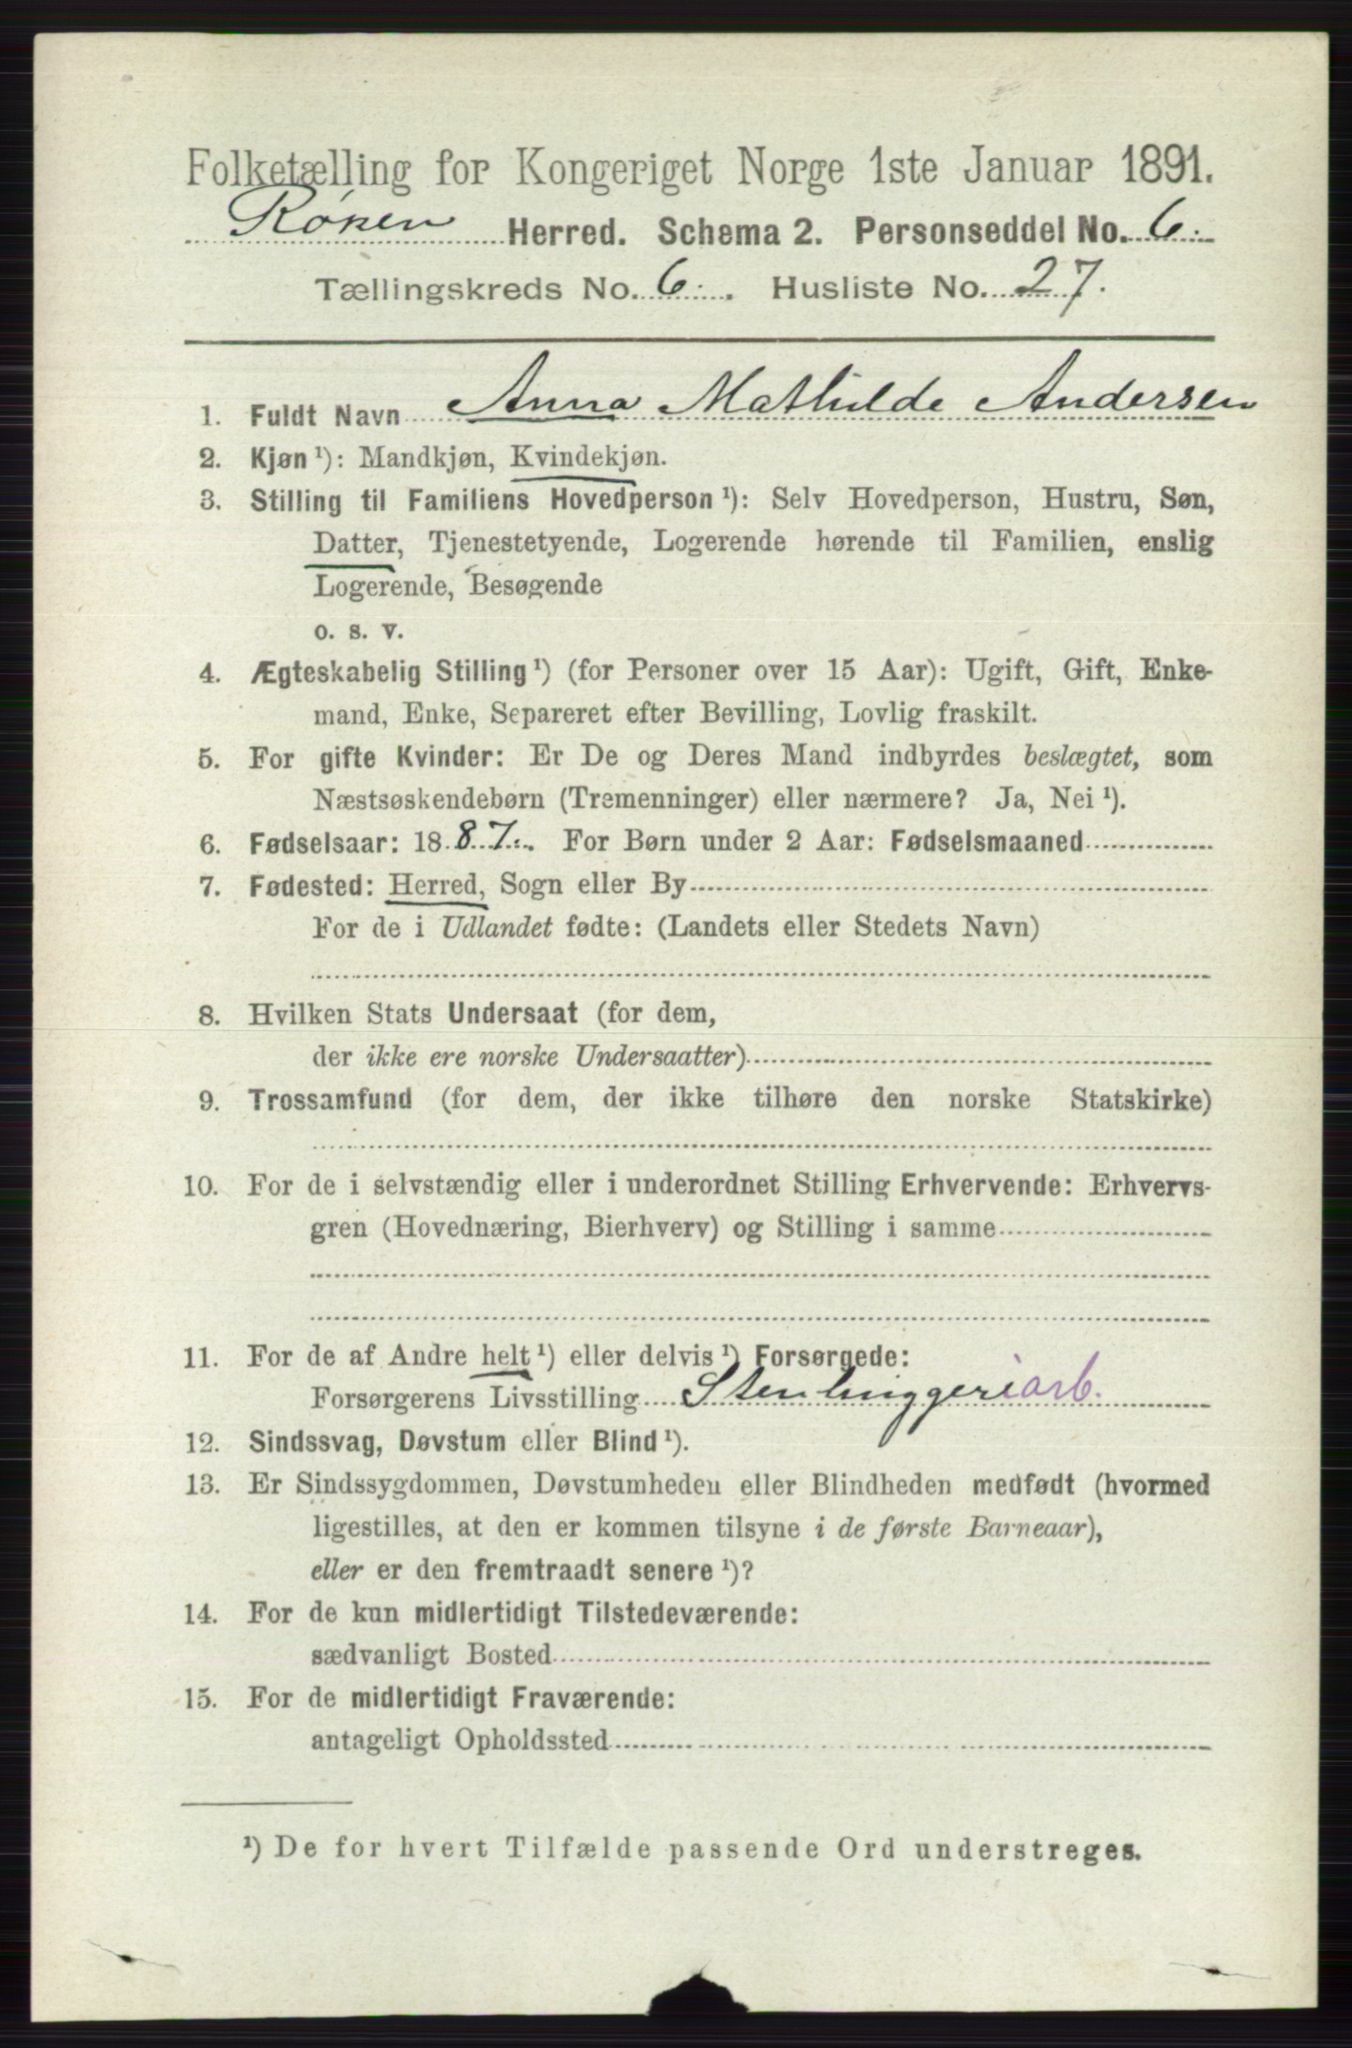 Folketælling for Kongeriget Norge 1ste Januar 1891.
Røken Herred. Schema 2. Personseddel No. 6.
Tællingskreds No. 6. Husliste No. 27.
1. Fuldt Navn Anna Mathilde Andersen
2. Kjøn ¹): Mandkjøn, Kvindekjøn.
3. Stilling til Familiens Hovedperson ¹): Selv Hovedperson, Hustru, Søn,
Datter, Tjenestetyende, Logerende hørende til Familien, enslig
Logerende, Besøgende
o. s. v.
4. Ægteskabelig Stilling ¹) (for Personer over 15 Aar): Ugift, Gift, Enke-
mand, Enke, Separeret efter Bevilling, Lovlig fraskilt.
5. For gifte Kvinder: Er De og Deres Mand indbyrdes beslægtet, som
Næstsøskendebørn (Tremenninger) eller nærmere? Ja, Nei ¹).
6. Fødselsaar: 1887. For Børn under 2 Aar: Fødselsmaaned
7. Fødested: Herred, Sogn eller By
For de i Udlandet fødte: (Landets eller Stedets Navn)
8. Hvilken Stats Undersaat (for dem,
der ikke ere norske Undersaatter)
9. Trossamfund (for dem, der ikke tilhøre den norske Statskirke)
10. For de i selvstændig eller i underordnet Stilling Erhvervende: Erhvervs-
gren (Hovednæring, Bierhverv) og Stilling i samme
11. For de af Andre helt ¹) eller delvis ¹) Forsørgede:
Forsørgerens Livsstilling Stenhuggeriarb.
12. Sindssvag, Døvstum eller Blind ¹).
13. Er Sindssygdommen, Døvstumheden eller Blindheden medfødt (hvormed
ligestilles, at den er kommen tilsyne i de første Barneaar),
eller er den fremtraadt senere ¹)?
14. For de kun midlertidigt Tilstedeværende:
sædvanligt Bosted
15. For de midlertidigt Fraværende:
antageligt Opholdssted
¹) De for hvert Tilfælde passende Ord understreges.